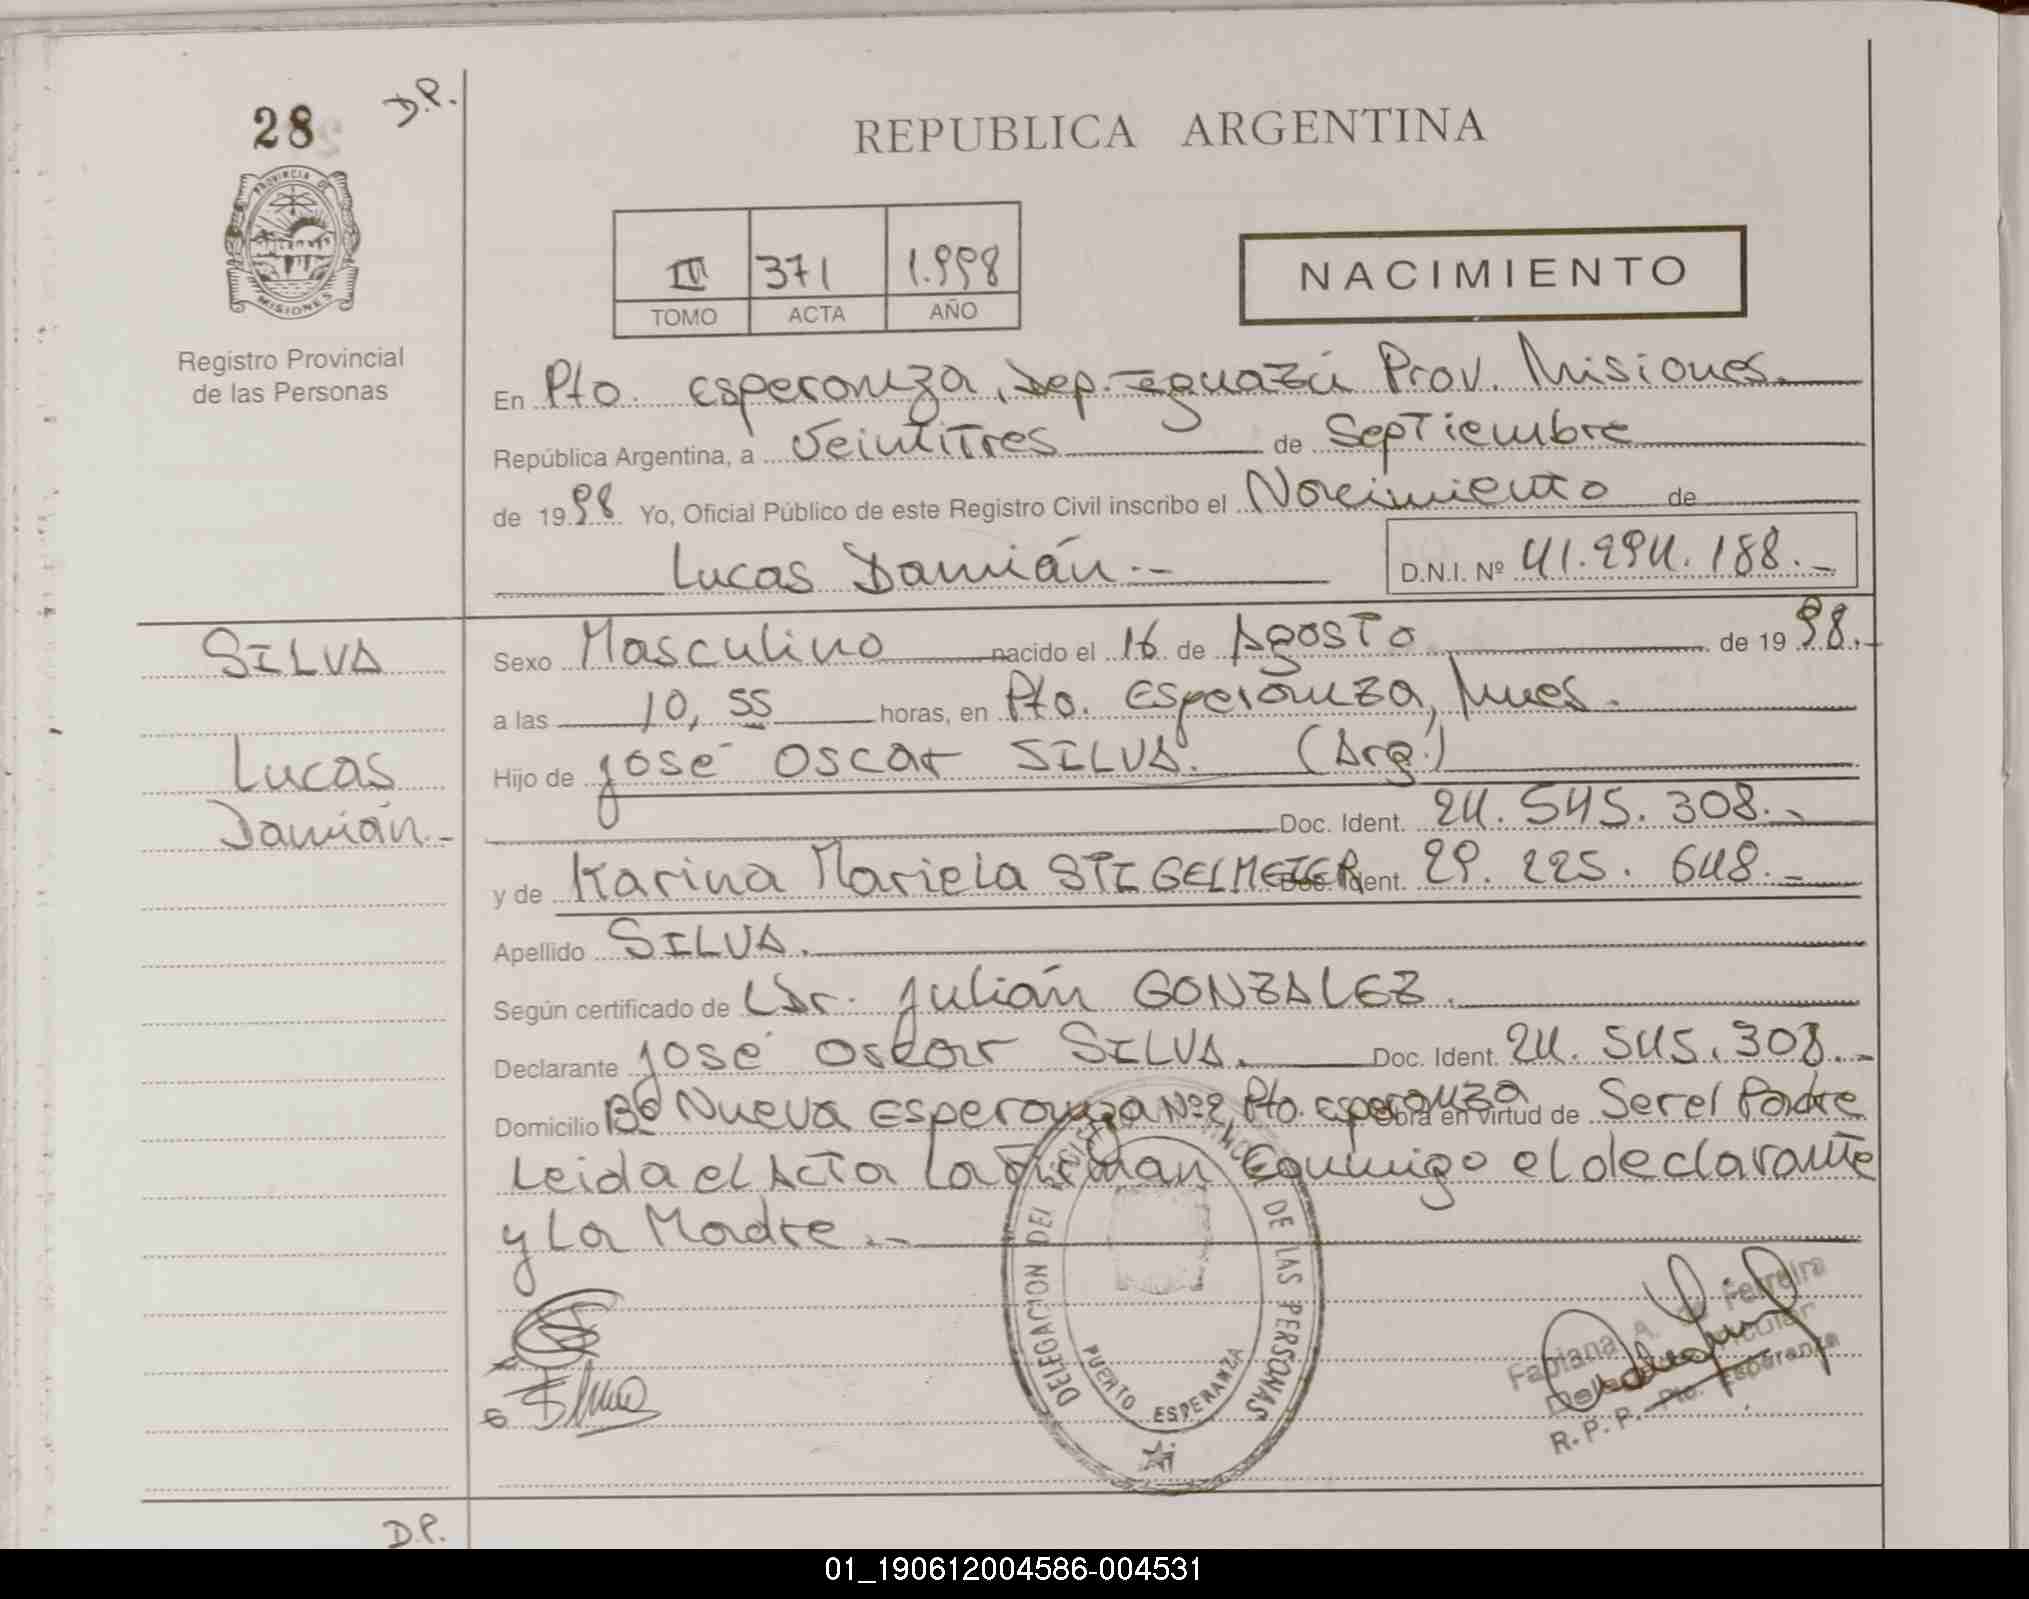 28 D.P.
PROVINCIA DE
MISIONES
Registro Provincial
de las Personas
REPUBLICA ARGENTINA
III 371 1.998
TOMO ACTA AÑO
NACIMIENTO
En Pto. Esperanza, Dep. Iguazú Prov. Misiones.
República Argentina, a Veintitres de Septiembre
de 1998 Yo, Oficial Público de este Registro Civil inscribo el Nacimiento de
Lucas Damián.-- D.N.I. Nº 41.294.188.-
SILVA
Lucas
Damián.-
Sexo Masculino nacido el 16 de Agosto de 1998.-
a las 10,55 horas, en Pto. Esperanza, Mnes.
Hijo de José Oscar SILVA. (Arg.)
Doc. Ident. 24.545.308.-
y de Karina Mariela STIGELMEIER Doc. Ident. 29.225.648.-
Apellido SILVA.
Según certificado de Dr. Julián GONZALEZ.
Declarante José Oscar SILVA. Doc. Ident. 24.545.308.-
Domicilio Bº Nueva Esperanza Nº2, Pto. Esperanza Obra en virtud de Ser el Padre
Leida el Acta la firman conmigo el declarante
y La Madre.-
DELEGACION DEL DE LAS PERSONAS
PUERTO ESPERANZA
Fabiana A. Ferreira
R.P.P. Pto. Esperanza
D.P.
01_190612004586-004531